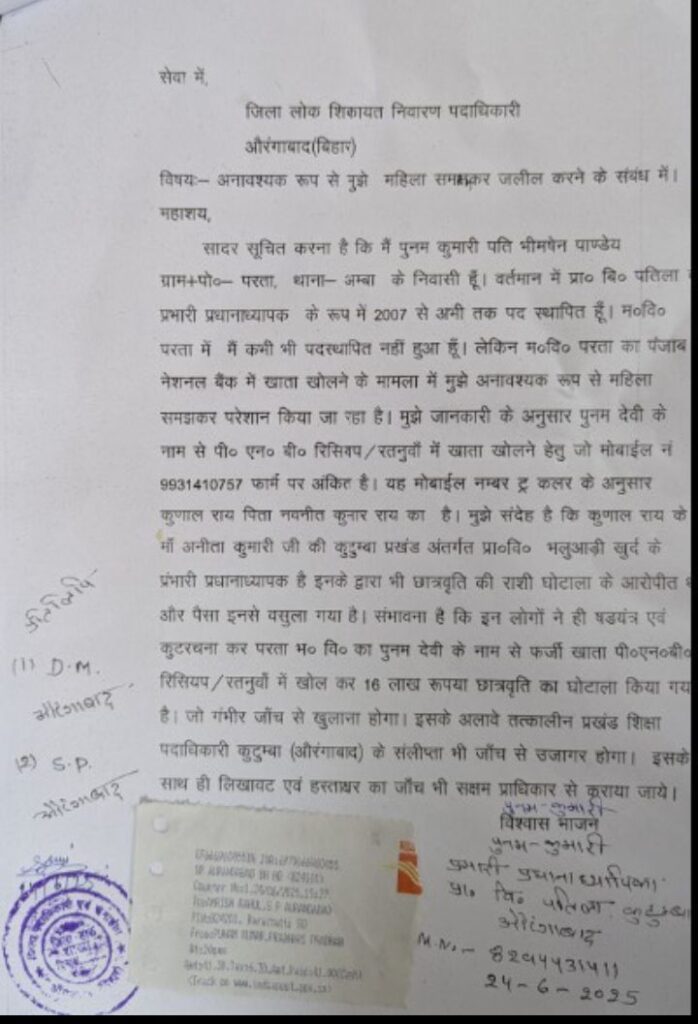 सेवा में,
जिला लोक शिकायत निवारण पदाधिकारी
औरंगाबाद(बिहार)
विषयः– अनावश्यक रूप से मुझे महिला समझकर जलील करने के संबंध में।
महाशय,
सादर सूचित करना है कि मैं पुनम कुमारी पति भीमषेन पाण्डेय
ग्राम+पो०– परता, थाना– अम्बा के निवासी हूँ। वर्तमान में प्रा० बि० पतिला
प्रभारी प्रधानाध्यापक के रूप में 2007 से अभी तक पद स्थापित हूँ। म०वि०
परता में मैं कभी भी पदस्थापित नहीं हुआ हूँ। लेकिन म०वि० परता का पंजाब
नेशनल बैंक में खाता खोलने के मामला में मुझे अनावश्यक रूप से महिला
समझकर परेशान किया जा रहा है। मुझे जानकारी के अनुसार पुनम देवी के
नाम से पी० एन० बी० रिसियप/रतनुवाँ में खाता खोलने हेतु जो मोबाईल नं
9931410757 फार्म पर अंकित है। यह मोबाईल नम्बर ट्रु कलर के अनुसार
कुणाल राय पिता नवनीत कुमार राय का है। मुझे संदेह है कि कुणाल राय के
माँ अनीता कुमारी जी की कुटुम्बा प्रखंड अंतर्गत प्रा०वि० भलुआड़ी खुर्द के
प्रंभारी प्रधानाध्यापक है इनके द्वारा भी छात्रवृति की राशी घोटाला के आरोपीत
और पैसा इनसे वसुला गया है। संभावना है कि इन लोगों ने ही षडयंत्र एवं
कुटरचना कर परता म० वि० का पुनम देवी के नाम से फर्जी खाता पी०एन०बी०
रिसियप/रतनुवाँ में खोल कर 16 लाख रूपया छात्रवृति का घोटाला किया गय
है। जो गंभीर जाँच से खुलाना होगा। इसके अलावे तत्कालीन प्रखंड शिक्षा
पदाधिकारी कुटुम्बा (औरंगाबाद) के संलीप्ता भी जाँच से उजागर होगा। इसके
साथ ही लिखावट एवं हस्ताक्षर का जाँच भी सक्षम प्राधिकार से कराया जाये।
प्रतिलिपि
(1) D.M.
औरंगाबाद
(2) S.P.
औरंगाबाद
पुनम-कुमारी
विश्वास भाजन
पुनम-कुमारी
प्रभारी प्रधानाध्यापिका
प्रा० वि० पतिला कुटुम्बा
औरंगाबाद
M.N.- 8294431411
24-6-2025
SP AURANGABAD
Counter No:1,24/06/2025,15:27
S.P AURANGABAD
(Track on www.indiapost.gov.in)